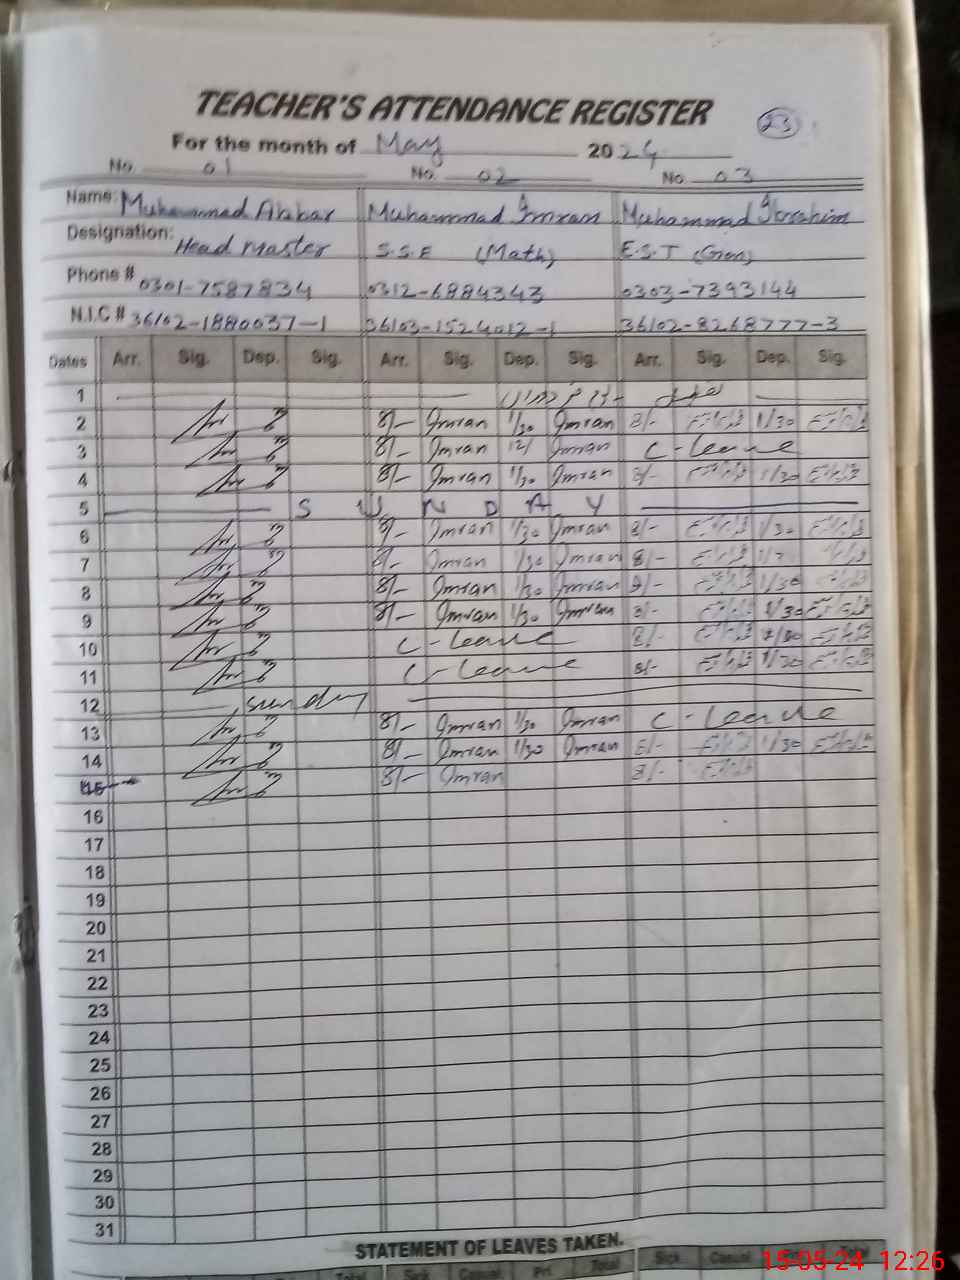 TEACHER'S ATTENDANCE REGISTER
23
For the month of May 2024
No. 01 No. 02 No. 03
Name: Muhammad Akbar Muhammad Imran Muhammad Ibrahim
Designation: Head Master S.S.E (Math) E.S.T (Gen)
Phone # 0301-7587834 0312-6884343 0303-7393144
N.I.C # 36102-1880037-1 36103-1524012-1 36102-8268777-3
Dates Arr. Sig. Dep. Sig. Arr. Sig. Dep. Sig. Arr. Sig. Dep. Sig.
1
2 8/- Imran 1/30 Imran 8/- 1/30
3 8/- Imran 12/ Imran C-Leave
4 8/- Imran 1/30 Imran 8/- 1/30
5 S U N D A Y
6 8/- Imran 1/30 Imran 8/- 1/30
7 8/- Imran 1/30 Imran 8/-
8 8/- Imran 1/30 Imran 8/- 1/30
9 8/- Imran 1/30 Imran 8/- 1/30
10 C-Leave 8/-
11 C-Leave 8/- 1/30
12 Sunday
13 8/- Imran 1/30 Imran C-Leave
14 8/- Imran 1/30 Imran 8/- 1/30
15 8/- Imran 8/-
16
17
18
19
20
21
22
23
24
25
26
27
28
29
30
31
STATEMENT OF LEAVES TAKEN.
Total Sick Casual Pri. Total Sick Casual Total
15-05-24 12:26